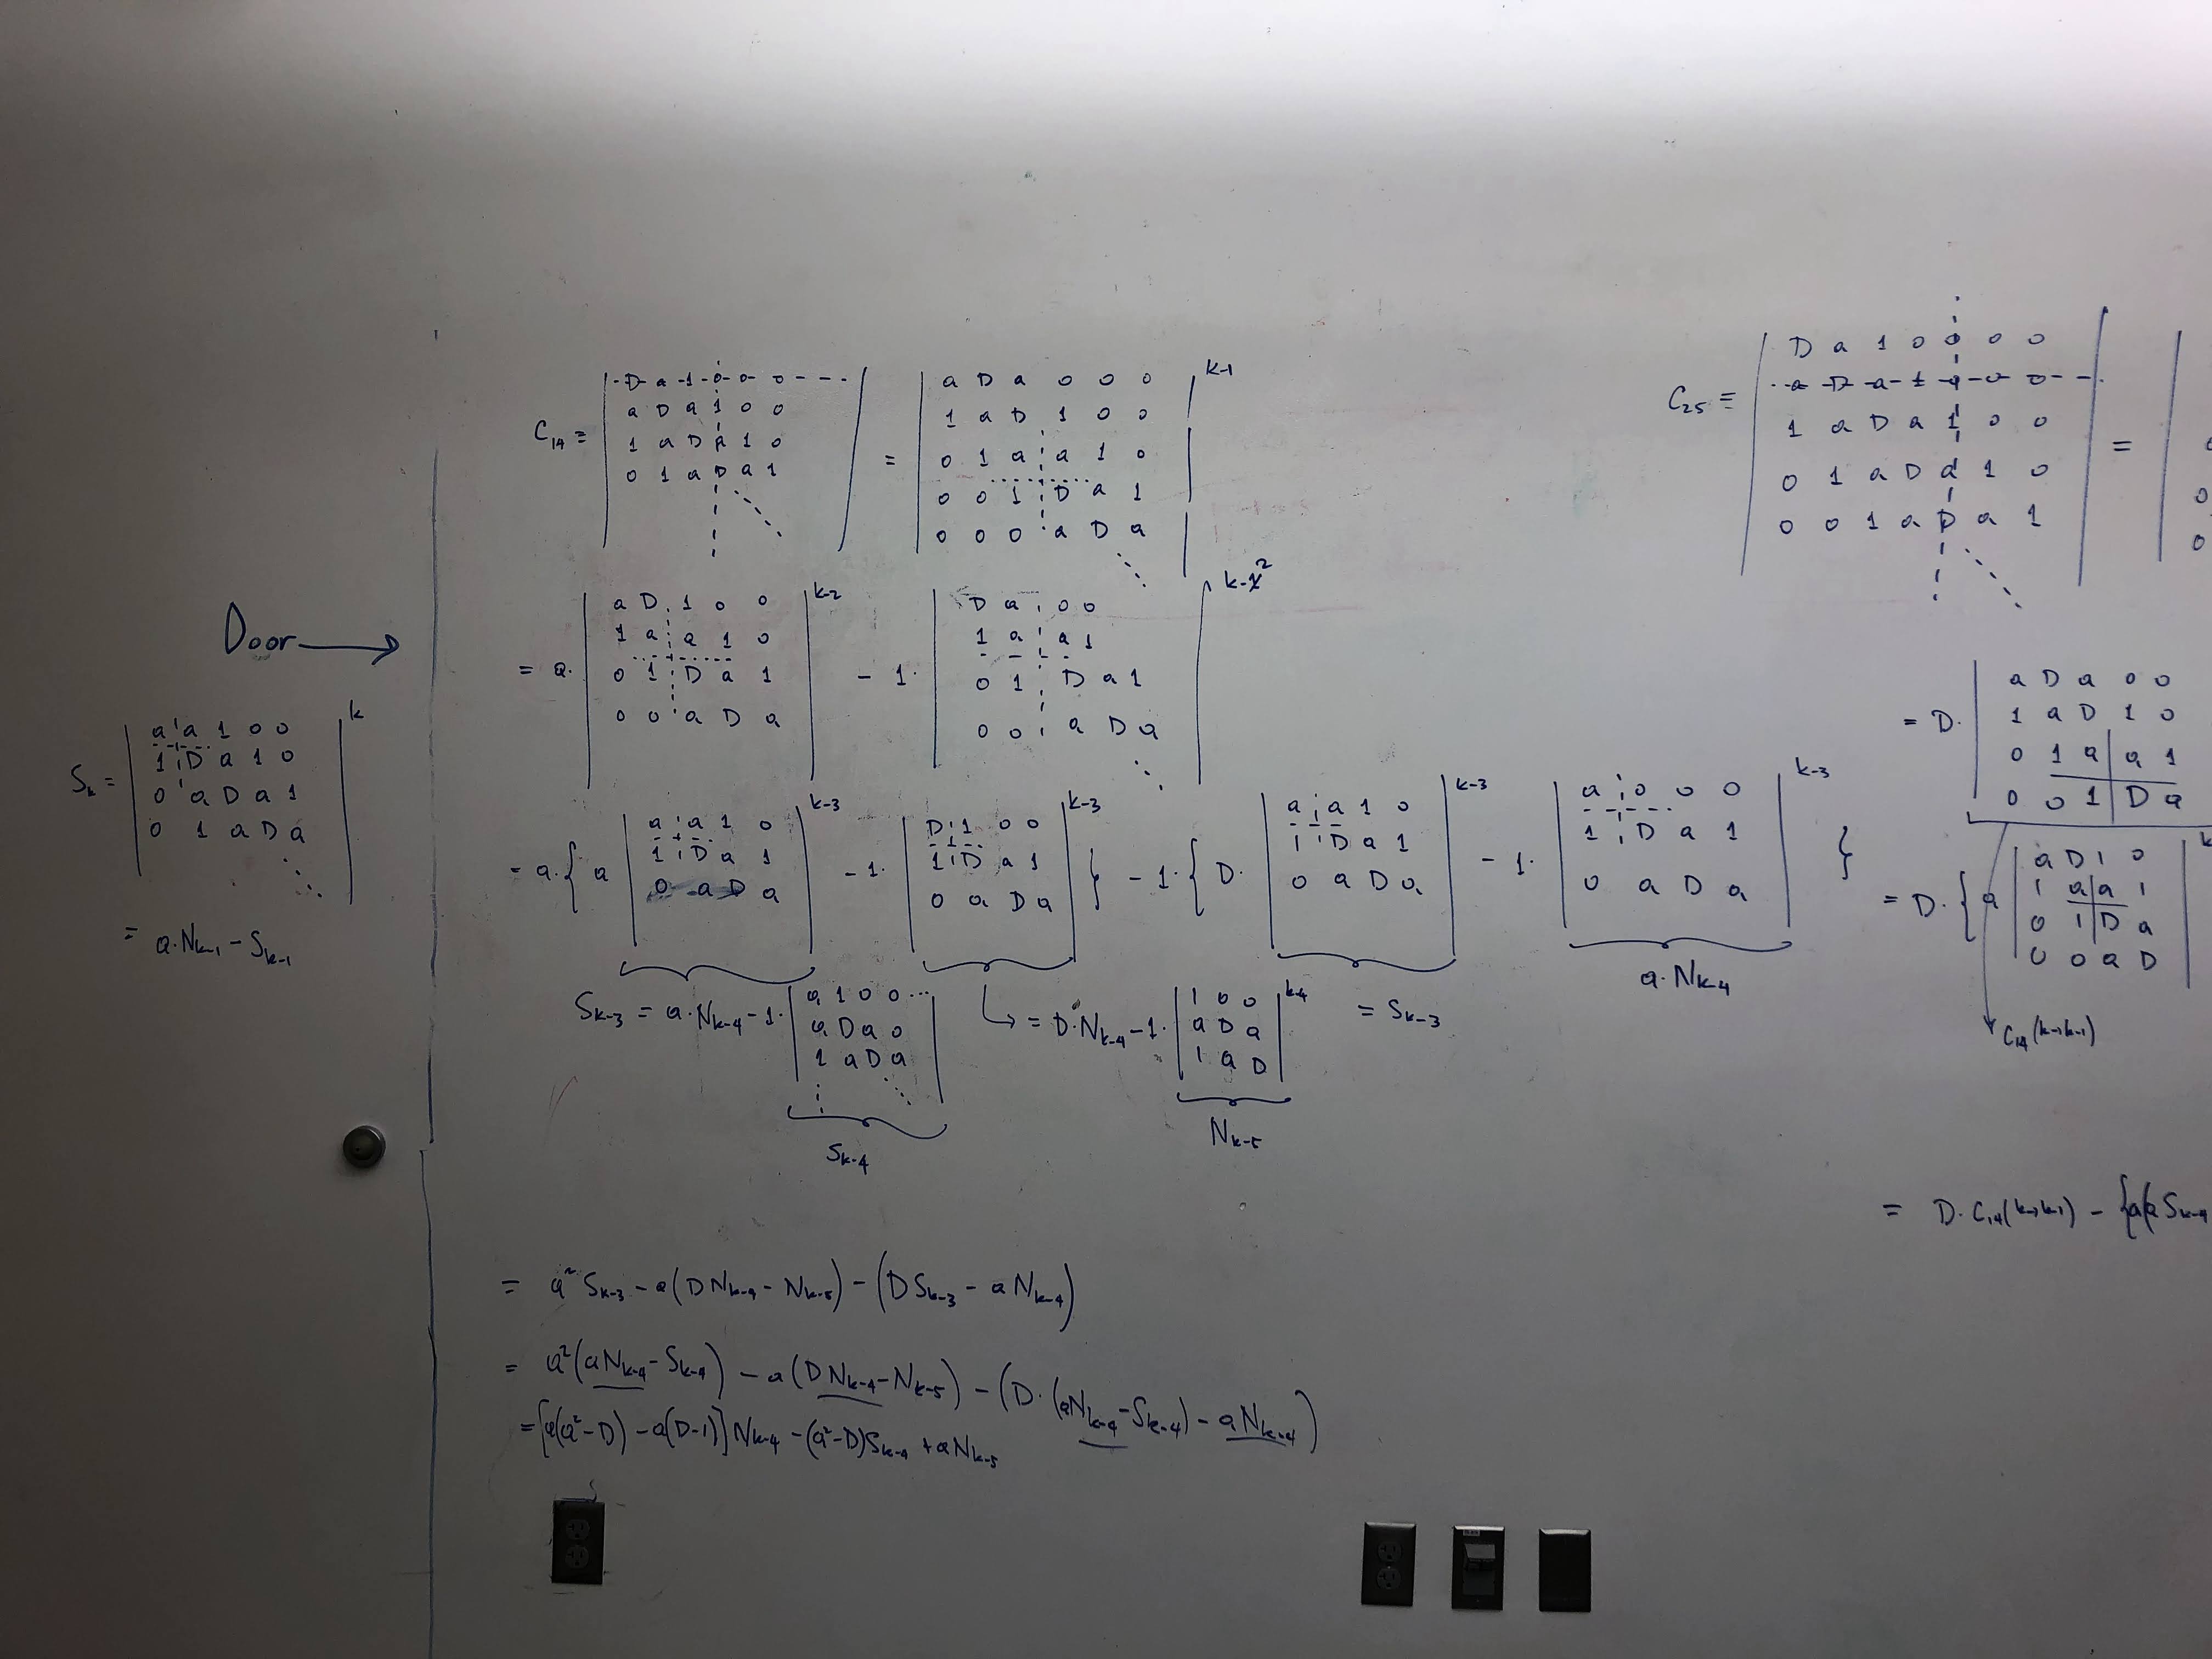 Door →
S_k = | a a 1 0 0 |^k
1 D a 1 0
0 a D a 1
0 1 a D a
= a·N_{k-1} - S_{k-1}
C_14 = | D a 1 0 0 0 | = | a D a 0 0 0 |^{k-1}
a D a 1 0 0 | 1 a D 1 0 0
1 a D a 1 0 | 0 1 a a 1 0
0 1 a D a 1 | 0 0 1 D a 1
0 0 0 a D a
= a· | a D 1 0 0 |^{k-2} - 1· | D a 0 0 |^{k-2}
1 a a 1 0 | 1 a a 1
0 1 D a 1 | 0 1 D a 1
0 0 a D a | 0 0 a D a
= a·{ a | a a 1 0 |^{k-3} - 1· | D 1 0 0 |^{k-3} } - 1·{ D· | a a 1 0 |^{k-3} - 1· | a 0 0 0 |^{k-3} }
1 D a 1 | 1 D a 1 | 1 D a 1 | 1 D a 1
0 a D a | 0 a D a | 0 a D a | 0 a D a
S_{k-3} = a·N_{k-4} - 1· | a 1 0 0 ... |
a D a 0
1 a D a
S_{k-4}
↳ = D·N_{k-4} - 1· | 1 0 0 |^{k-4}
a D a
1 a D
N_{k-5}
= S_{k-3}
a·N_{k-4}
= a² S_{k-3} - a(D N_{k-4} - N_{k-5}) - (D S_{k-3} - a N_{k-4})
= a²(a N_{k-4} - S_{k-4}) - a(D N_{k-4} - N_{k-5}) - (D·(a N_{k-4} - S_{k-4}) - a N_{k-4})
= [a(a²-D) - a(D-1)] N_{k-4} - (a²-D) S_{k-4} + a N_{k-5}
C_25 = | D a 1 0 0 0 0 | = |
a D a 1 a 0 0
1 a D a 1 0 0
0 1 a D a 1 0
0 0 1 a D a 1
= D· | a D a 0 0
1 a D 1 0
0 1 a a 1
0 0 1 D a
= D·{ a | a D 1 0 |
1 a a 1
0 1 D a
0 0 a D
C_14(k-1,k-1)
= D·C_14(k-1,k-1) - {a(a S_{k-4}